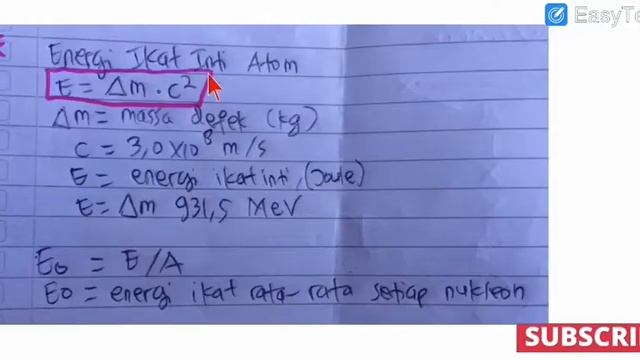 EasyTe
Energi Ikat Inti Atom
E = Δm . c²
Δm = massa defek (kg)
c = 3,0 x 10⁸ m/s
E = energi ikat inti, (Joule)
E = Δm 931,5 MeV
E₀ = E/A
E₀ = energi ikat rata-rata setiap nukleon
SUBSCRI